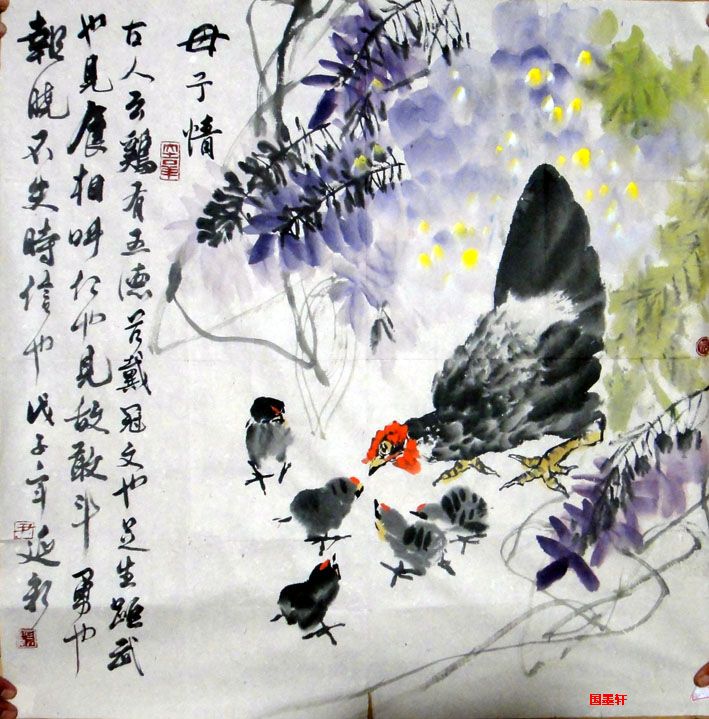 母子情
古人云鷄有五德首戴冠文也足生距武
也見食相呼仁也見敌敢斗勇也
報曉不失時信也戊子年延
国墨轩